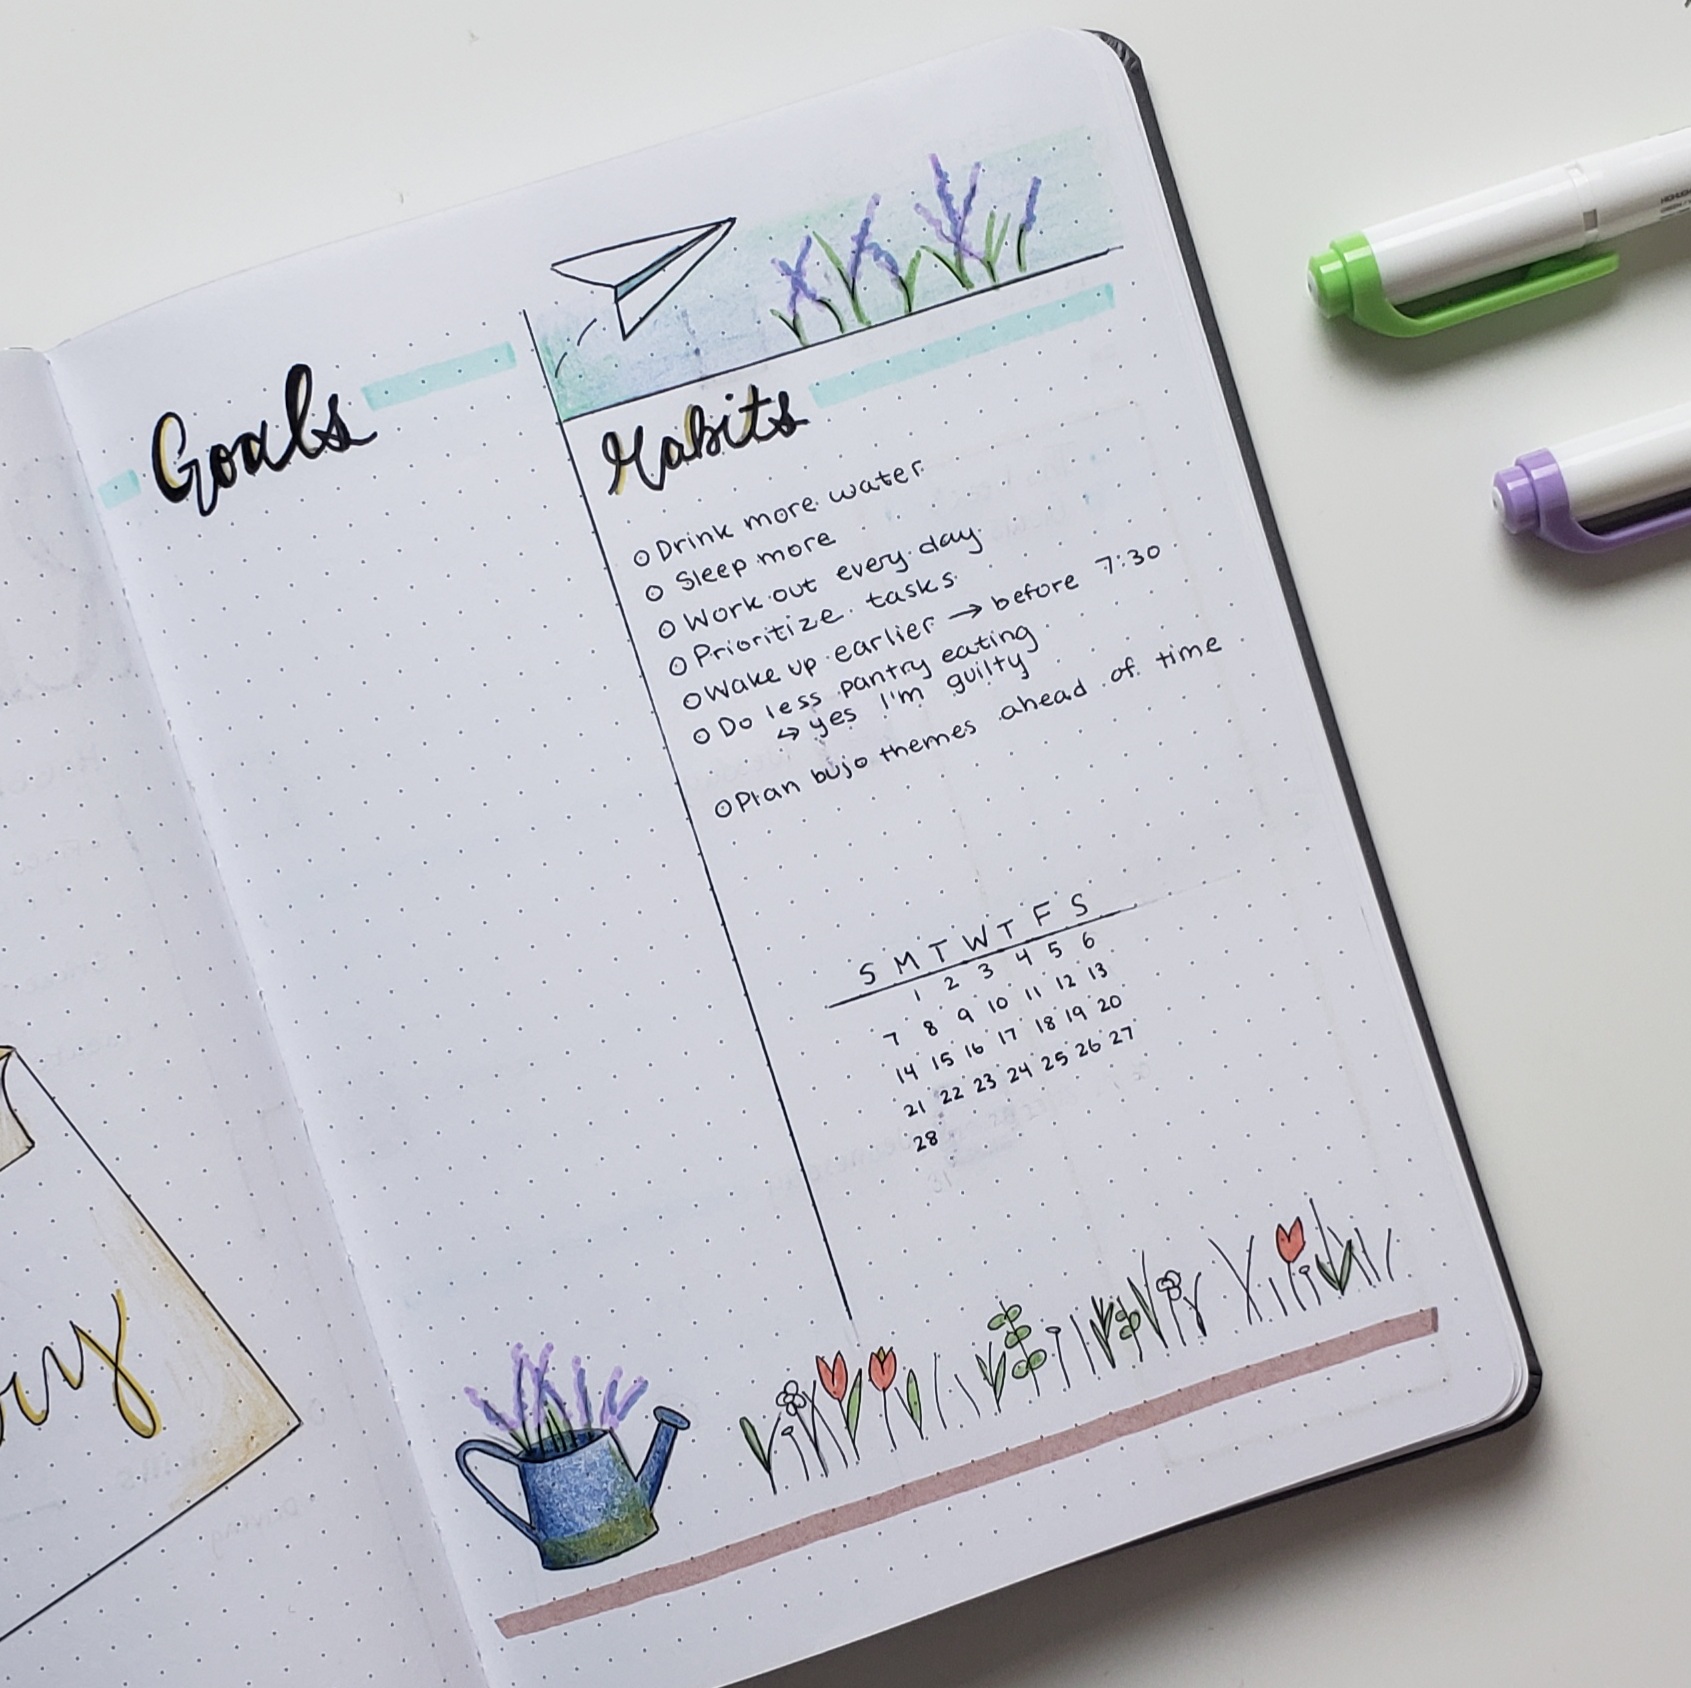 Goals
Habits
Drink more water
Sleep more
Work out every day
Prioritize tasks
Wake up earlier → before 7:30
Do less pantry eating
↳ yes I'm guilty
Plan bujo themes ahead of time
S M T W T F S
1 2 3 4 5 6
7 8 9 10 11 12 13
14 15 16 17 18 19 20
21 22 23 24 25 26 27
28
31